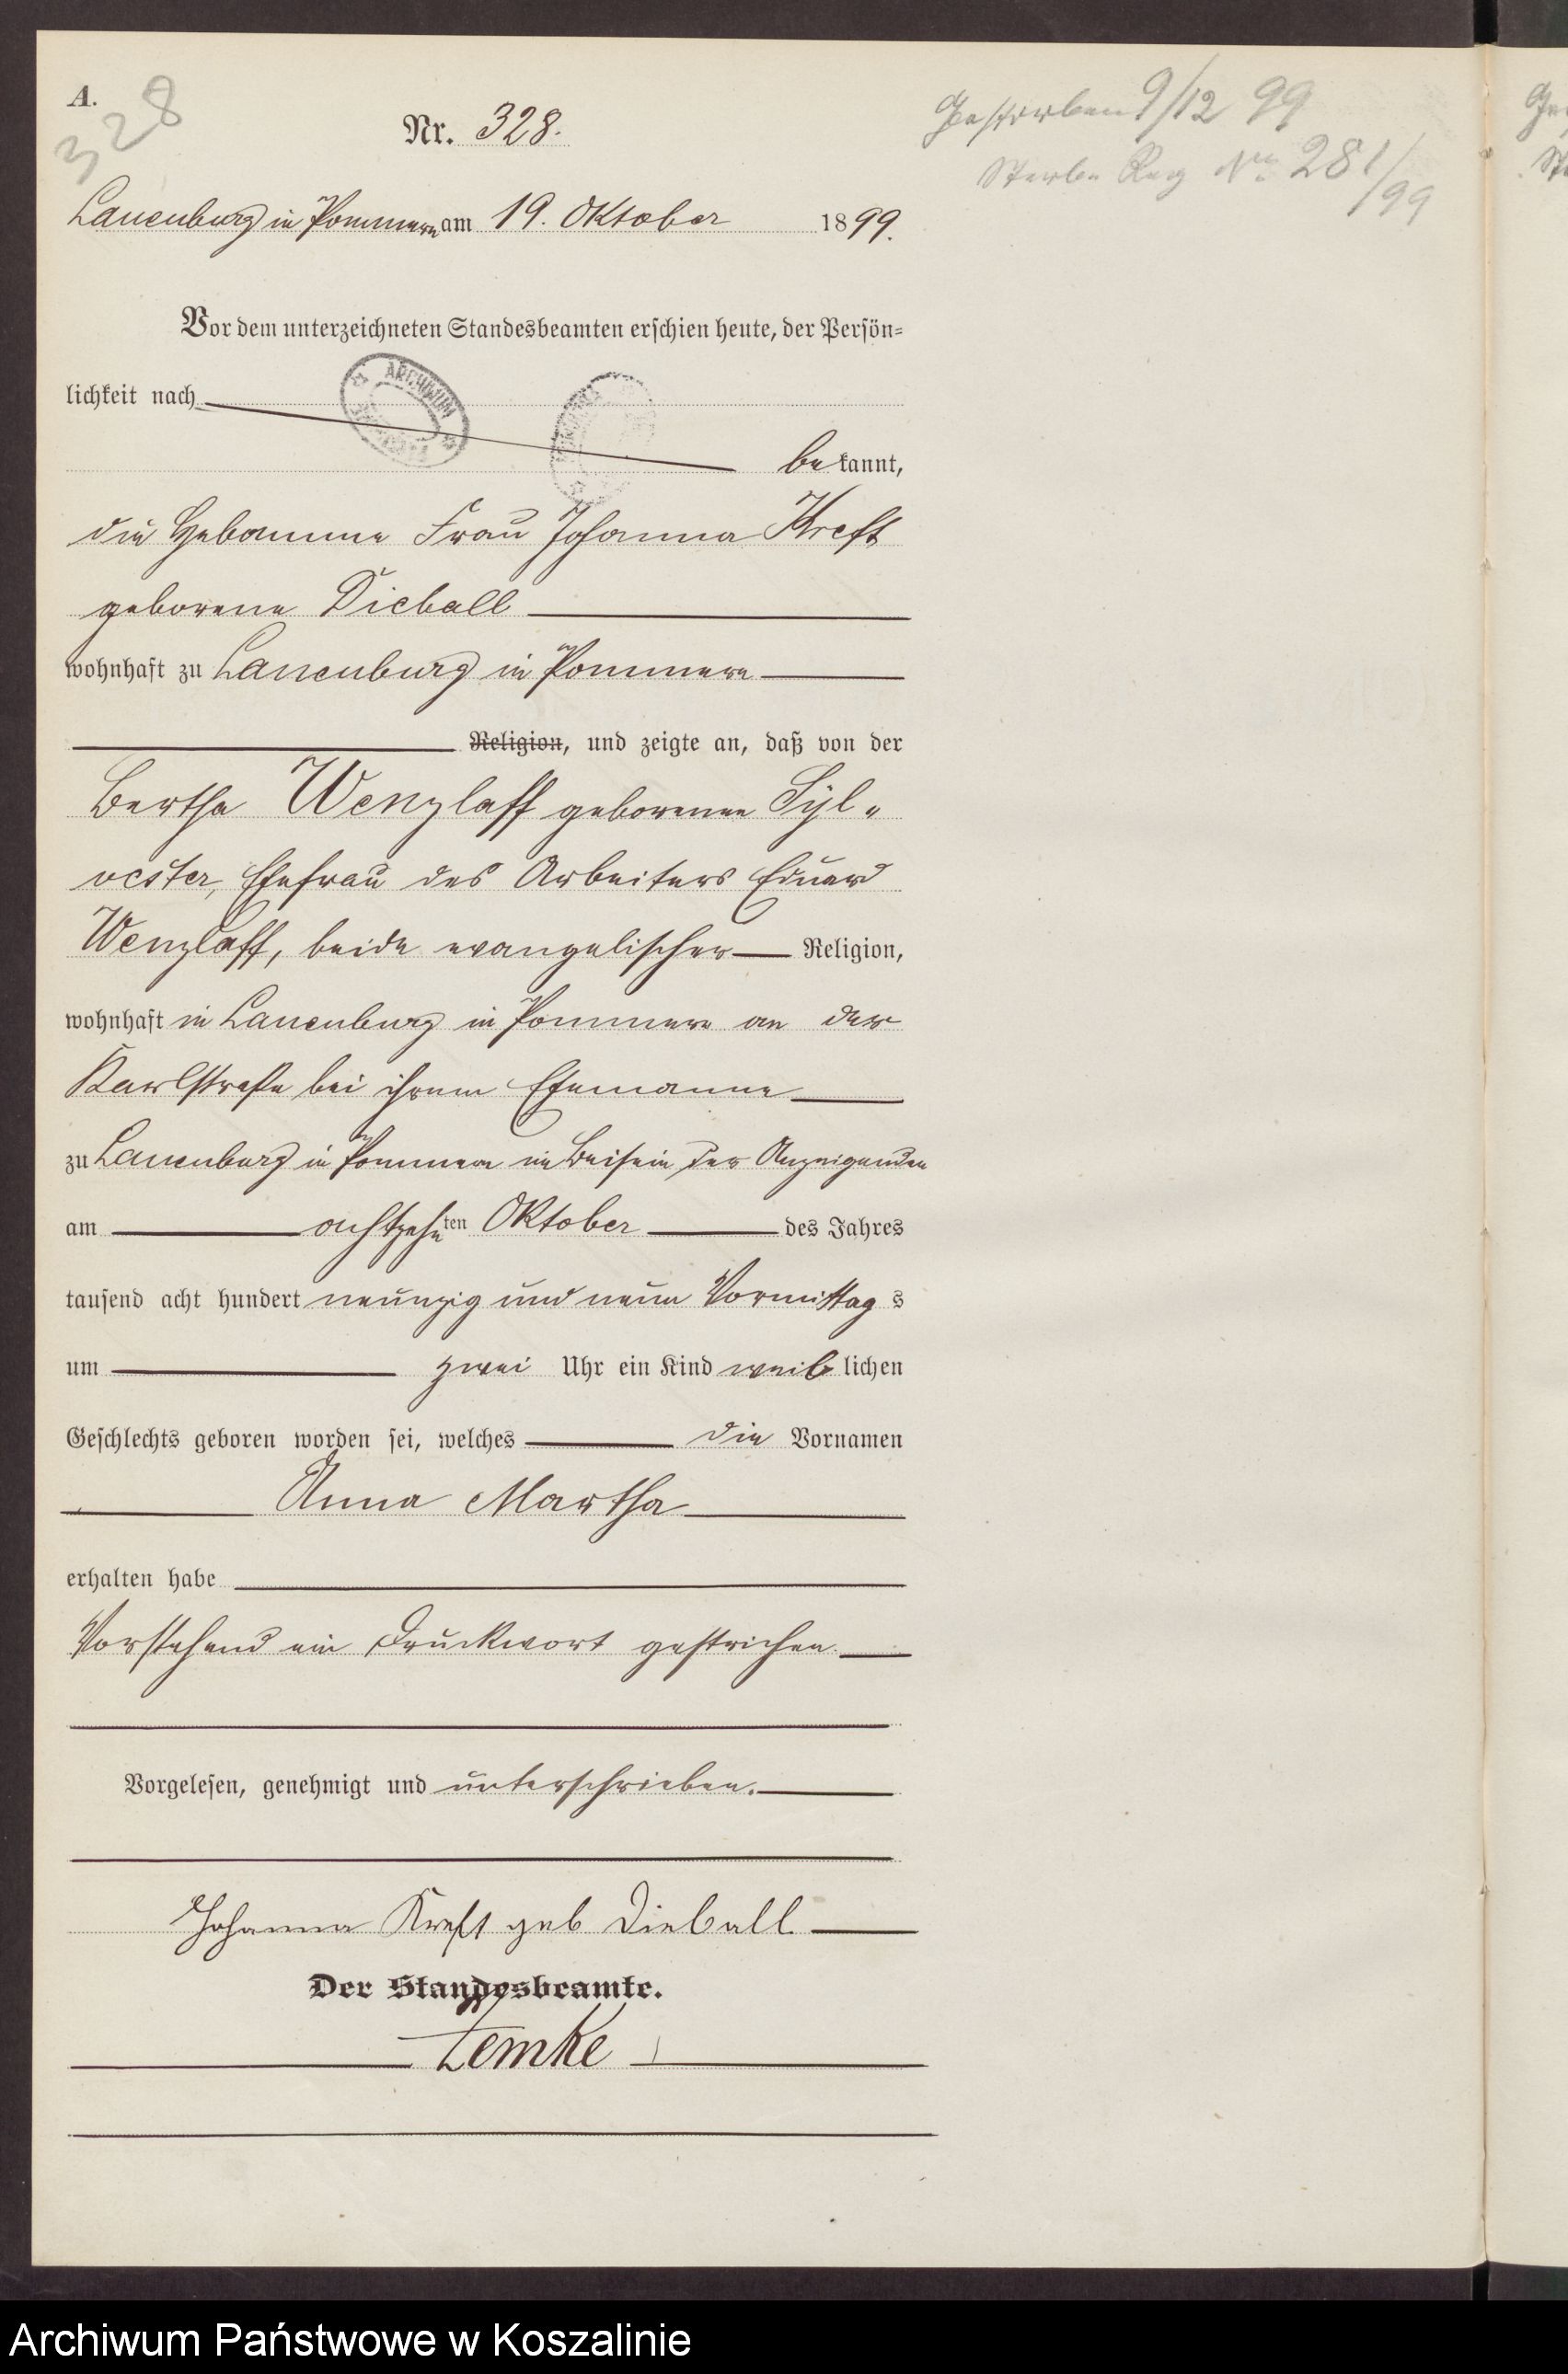 A.
328
Nr. 328.
Gestorben 9/12 99
Sterbe Reg Nr. 281/99
Lauenburg in Pommern am 19. Oktober 1899.
Vor dem unterzeichneten Standesbeamten erschien heute, der Persön=
lichkeit nach
ARCHIWUM
bekannt,
die Hebamme Frau Johanna Kreft
geborene Dieball
wohnhaft zu Lauenburg in Pommern
Religion, und zeigte an, daß von der
Bertha Wenzlaff geborenen Syl„
vester, Ehefrau des Arbeiters Eduard
Wenzlaff, beide evangelischer Religion,
wohnhaft in Lauenburg in Pommern an der
Karlstraße bei ihrem Ehemanne
zu Lauenburg in Pommern im Beisein der Anzeigenden
am achtzehnten Oktober des Jahres
tausend acht hundert neunzig und neun Vormittags
um zwei Uhr ein Kind weiblichen
Geschlechts geboren worden sei, welches die Vornamen
Anna Martha
erhalten habe
Vorstehend ein Druckwort gestrichen.
Vorgelesen, genehmigt und unterschrieben.
Johanna Kreft geb Dieball
Der Standesbeamte.
Lemke
Archiwum Państwowe w Koszalinie